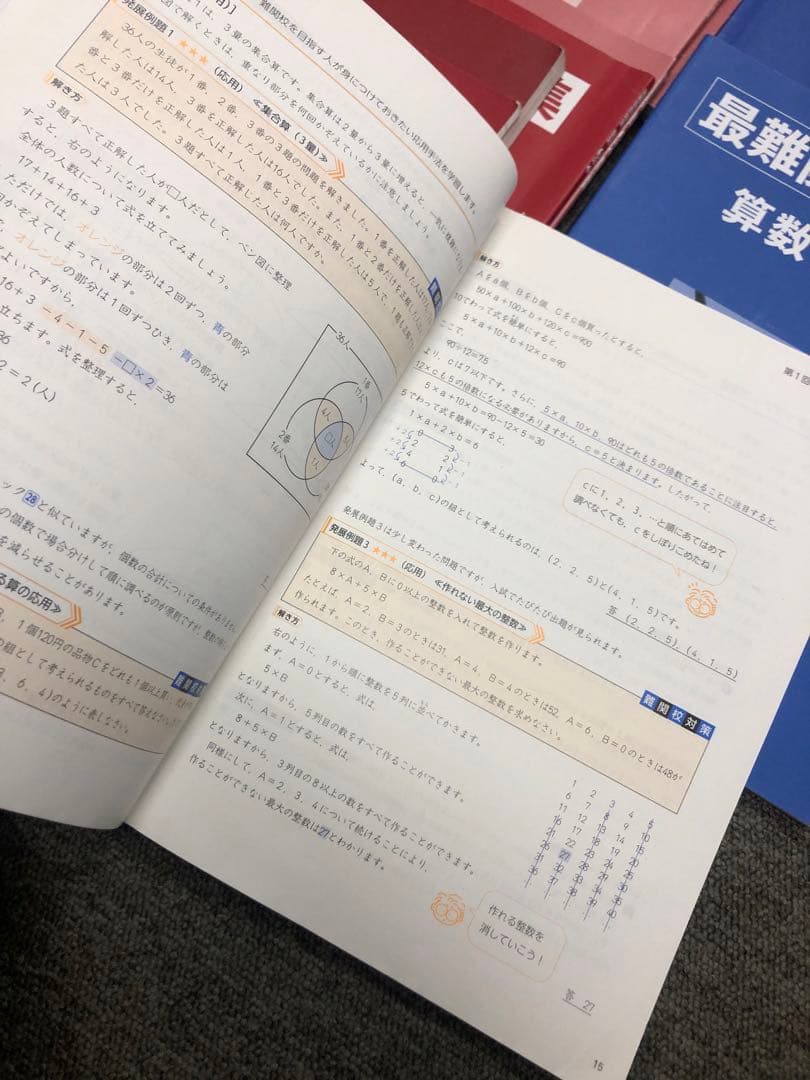 難関校を目指す人が身につけておきたい応用手法を学習します。
1は、3量の集合算です。集合算は2量から3量に増えると、一気に複雑に
図で解くときは、重なり部分を何回かぞえているかに注意しましょう。
発展例題1 ★★★ (応用) ≪集合算(3量)≫
36人の生徒が1番、2番、3番の3題の問題を解きました。1番を正解した人は17
解した人は14人、3番を正解した人は16人でした。また、1番と2番だけを正解した
番と3番だけを正解した人は1人、1番と3番だけを正解した人は5人で、1題も正解
た人は3人でした。3題すべて正解した人は何人ですか。
解き方
3題すべて正解した人が□人だとして、ベン図に整理
すると、右のようになります。
全体の人数について式を立ててみましょう。
17+14+16+3
ただけでは、オレンジの部分は2回ずつ、青の部分
かぞえてしまっています。
オレンジの部分は1回ずつひき、青の部分は
よいですから、
16+3-4-1-5-□×2=36
立ちます。式を整理すると、
36
2=2(人)
36人
1番
17人
4人
□人
1人
2番
14人
ック28と似ていますが、個数の合計についての条件がありません。
の個数で場合分けして順に調べるのが原則ですが、整数の
を減らせることがあります。
る算の応用≫
1個120円の品物Cをどれも1個以上買い、
の組として考えられるものをすべて答えなさい。
8、6、4)のように表しなさい。
第1回
解き方
Aをa個、Bをb個、Cをc個買ったとすると、
50×a+100×b+120×c=900
10でわって式を簡単にすると、
5×a+10×b+12×c=90
ここで、
90÷12=7.5
より、cは7以下です。さらに、5×a、10×b、90はどれも5の倍数であることに注目すると、
12×cも5の倍数になる必要がありますから、c=5と決まります。したがって、
5×a+10×b=90-12×5=30
5でわって式を簡単にすると、
1×a+2×b=6
0 3
2 2
4 1
6 0
よって、(a、b、c)の組として考えられるのは、(2、2、5)と(4、1、5)です。
答 (2、2、5)、(4、1、5)
cに1、2、3、…と順にあてはめて
調べなくても、cをしぼりこめたね!
発展例題3は少し変わった問題ですが、入試でたびたび出題が見られます。
発展例題3 ★★★ (応用) ≪作れない最大の整数≫
難関校対策
下の式のA、Bに0以上の整数を入れて整数を作ります。
8×A+5×B
たとえば、A=2、B=3のときは31、A=4、B=4のときは52、A=6、B=0のときは48が
作られます。このとき、作ることができない最大の整数を求めなさい。
解き方
右のように、1から順に整数を5列に並べてかきます。
まず、A=0とすると、式は、
5×B
となりますから、5列目の数をすべて作ることができます。
次に、A=1とすると、式は、
8+5×B
となりますから、3列目の8以上の数をすべて作ることができます。
同様にして、A=2、3、4について続けることにより、
作ることができない最大の整数は27とわかります。
1 2 3 4 5
6 7 8 9 10
11 12 13 14 15
16 17 18 19 20
21 22 23 24 25
26 27 28 29 30
31 32 33 34 35
36 37 38 39 40
作れる整数を
消していこう!
答 27
15
集
最難
算数